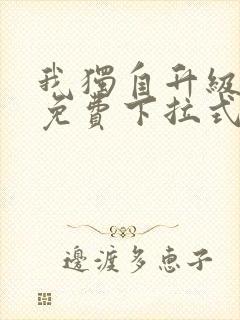 我獨自升級
免費下拉式
邊渡多恵子